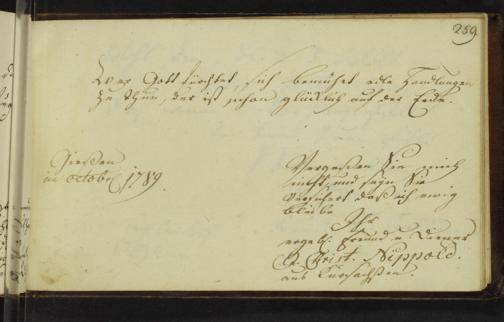 259
Wer Gott fürchtet, sich bemühet edle Handlungen
zu thun, der ist schon glücklich auf der Erde.
Giessen
im October 1789.
Vergessen Sie mich
nicht, und seyn Sie
versichert daß ich ewig
bleibe
Ihr
ergebst. Freund u. Diener
Christ. Nippold.
aus Cursachsen.